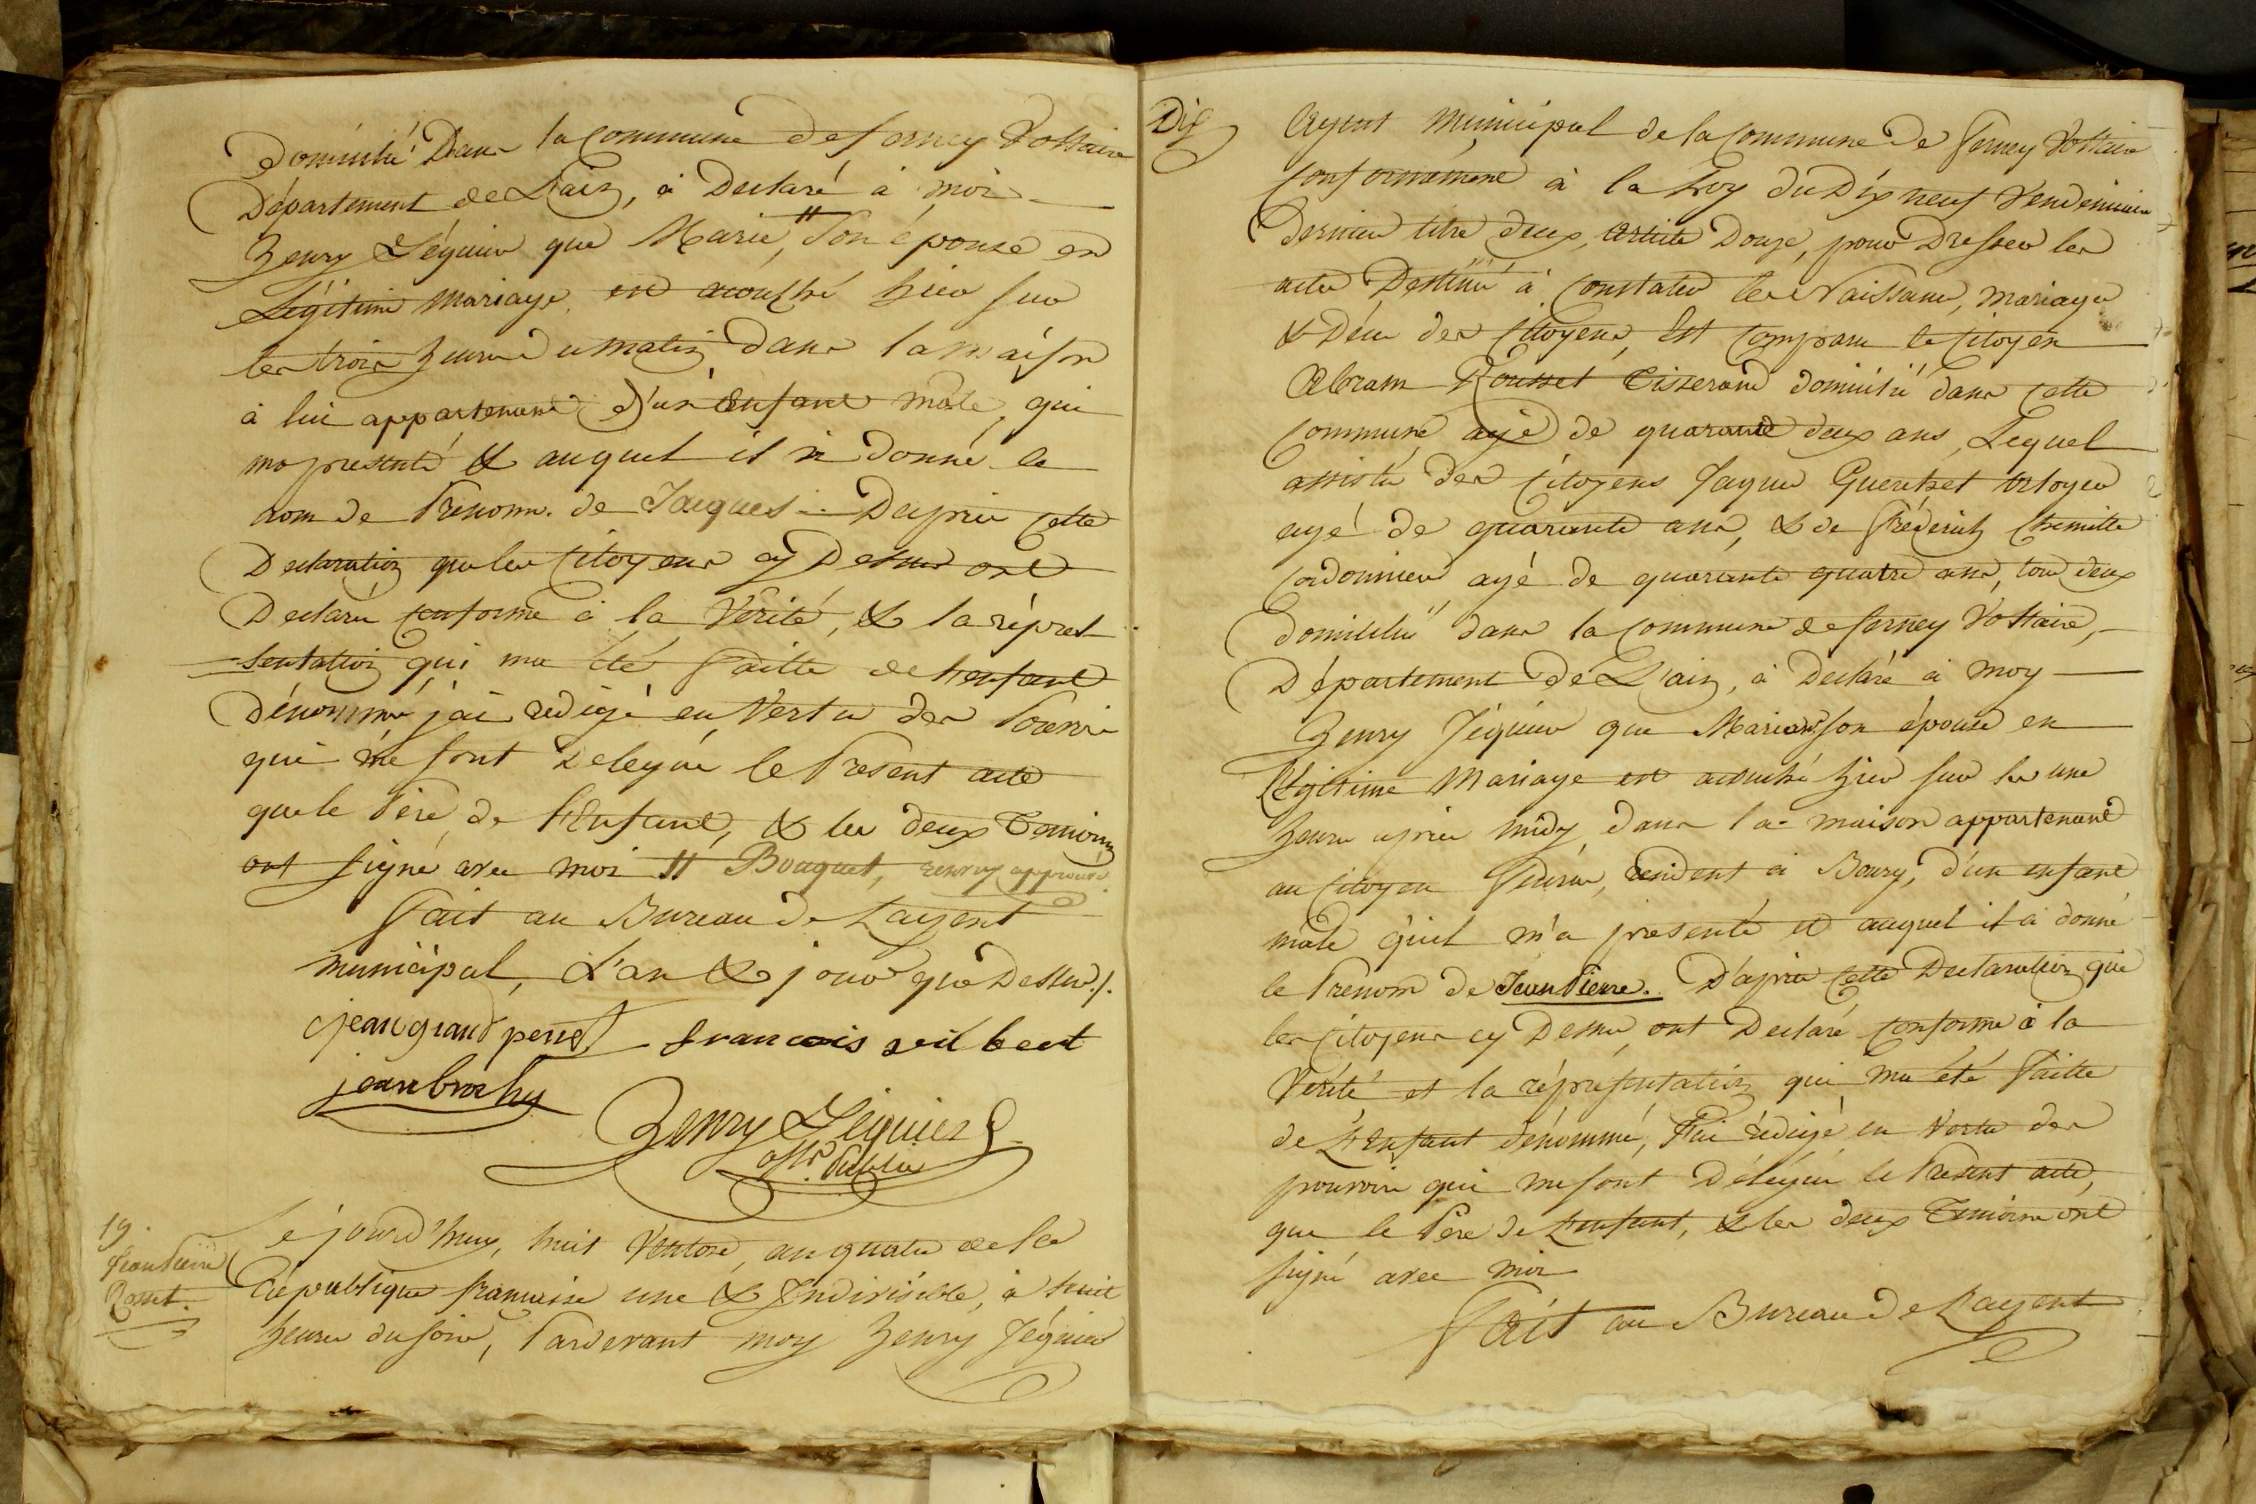 domicilié Dans la Commune de ferney Voltaire
Département de L'ain, à Declaré à moi
henry Séquier que Marie, " son épouse en
Légitime Mariage est acouché hier sur
les trois heures du matin dans la maison
à lui appartenant d'un Enfant mâle, qui
ma presenté & auquel il a donné le
nom de Prénom. de Jacques. Daprès cette
Declaration que les Citoyens cy Dessus ont
Declaré conforme à la Vérité, & la répres-
sentation qui ma été faitte de l'enfant
dénommé j'ai redigé en Vertu des Pouvoirs
qui me sont Delegué le Present acte
que le Père de l'Enfant, & les deux Temoins
ont signé avec moi " Bouquet, renvoy approuvé.
fait au Bureau de Lagent
municipal, L'an & jour que Dessus./.
jean grand perret francois
jean brochy
henry Séquier
offr. Public
19.
Jean Pierre
Rosset.
Ce jourd'huy, huit Ventose, an quatre de la
République francaise une & Indivisible, à huit
heures du soir, Pardevant moy henry Séquier
Dix
Agent Municipal de la Commune de Ferney Voltaire
Conformément à la Loy du Dix neuf Vendemiaire
Dernier titre deux, article Douze, pour Dresser les
actes Destiné à Constater les Naissance, mariages
& Décès des Citoyens, Est Comparu le Citoyen
Abram Rousset Tisserand domicilié dans cette
Commune, agé de quarante deux ans, Lequel
assisté des Citoyens Jaques
agé de quarante ans, & de Fréderich
Cordonnier agé de quarante quatre ans, tous deux
Domicilié dans la Commune de ferney Voltaire,
Département de L'ain, à Declaré à moy
henry Séquier que son épouse en
Légitime Mariage est acouché hier sur les une
heure après midy, dans la maison appartenant
au Citoyen résident à Bourg, d'un enfant
mâle qu'il m'a presenté et auquel il à donné
le Prénom de Jean Pierre. D'après Cette Declaration que
les Citoyens cy Dessus ont Declaré conforme à la
Vérité et la répresentation qui ma été faitte
de L'Enfant dénommé, J'ai rédigé en Vertu des
pouvoirs qui me sont Délegué le Present acte,
que le Père de L'enfant, & les deux Temoins ont
signé avec moi
Fait au Bureau de Lagent